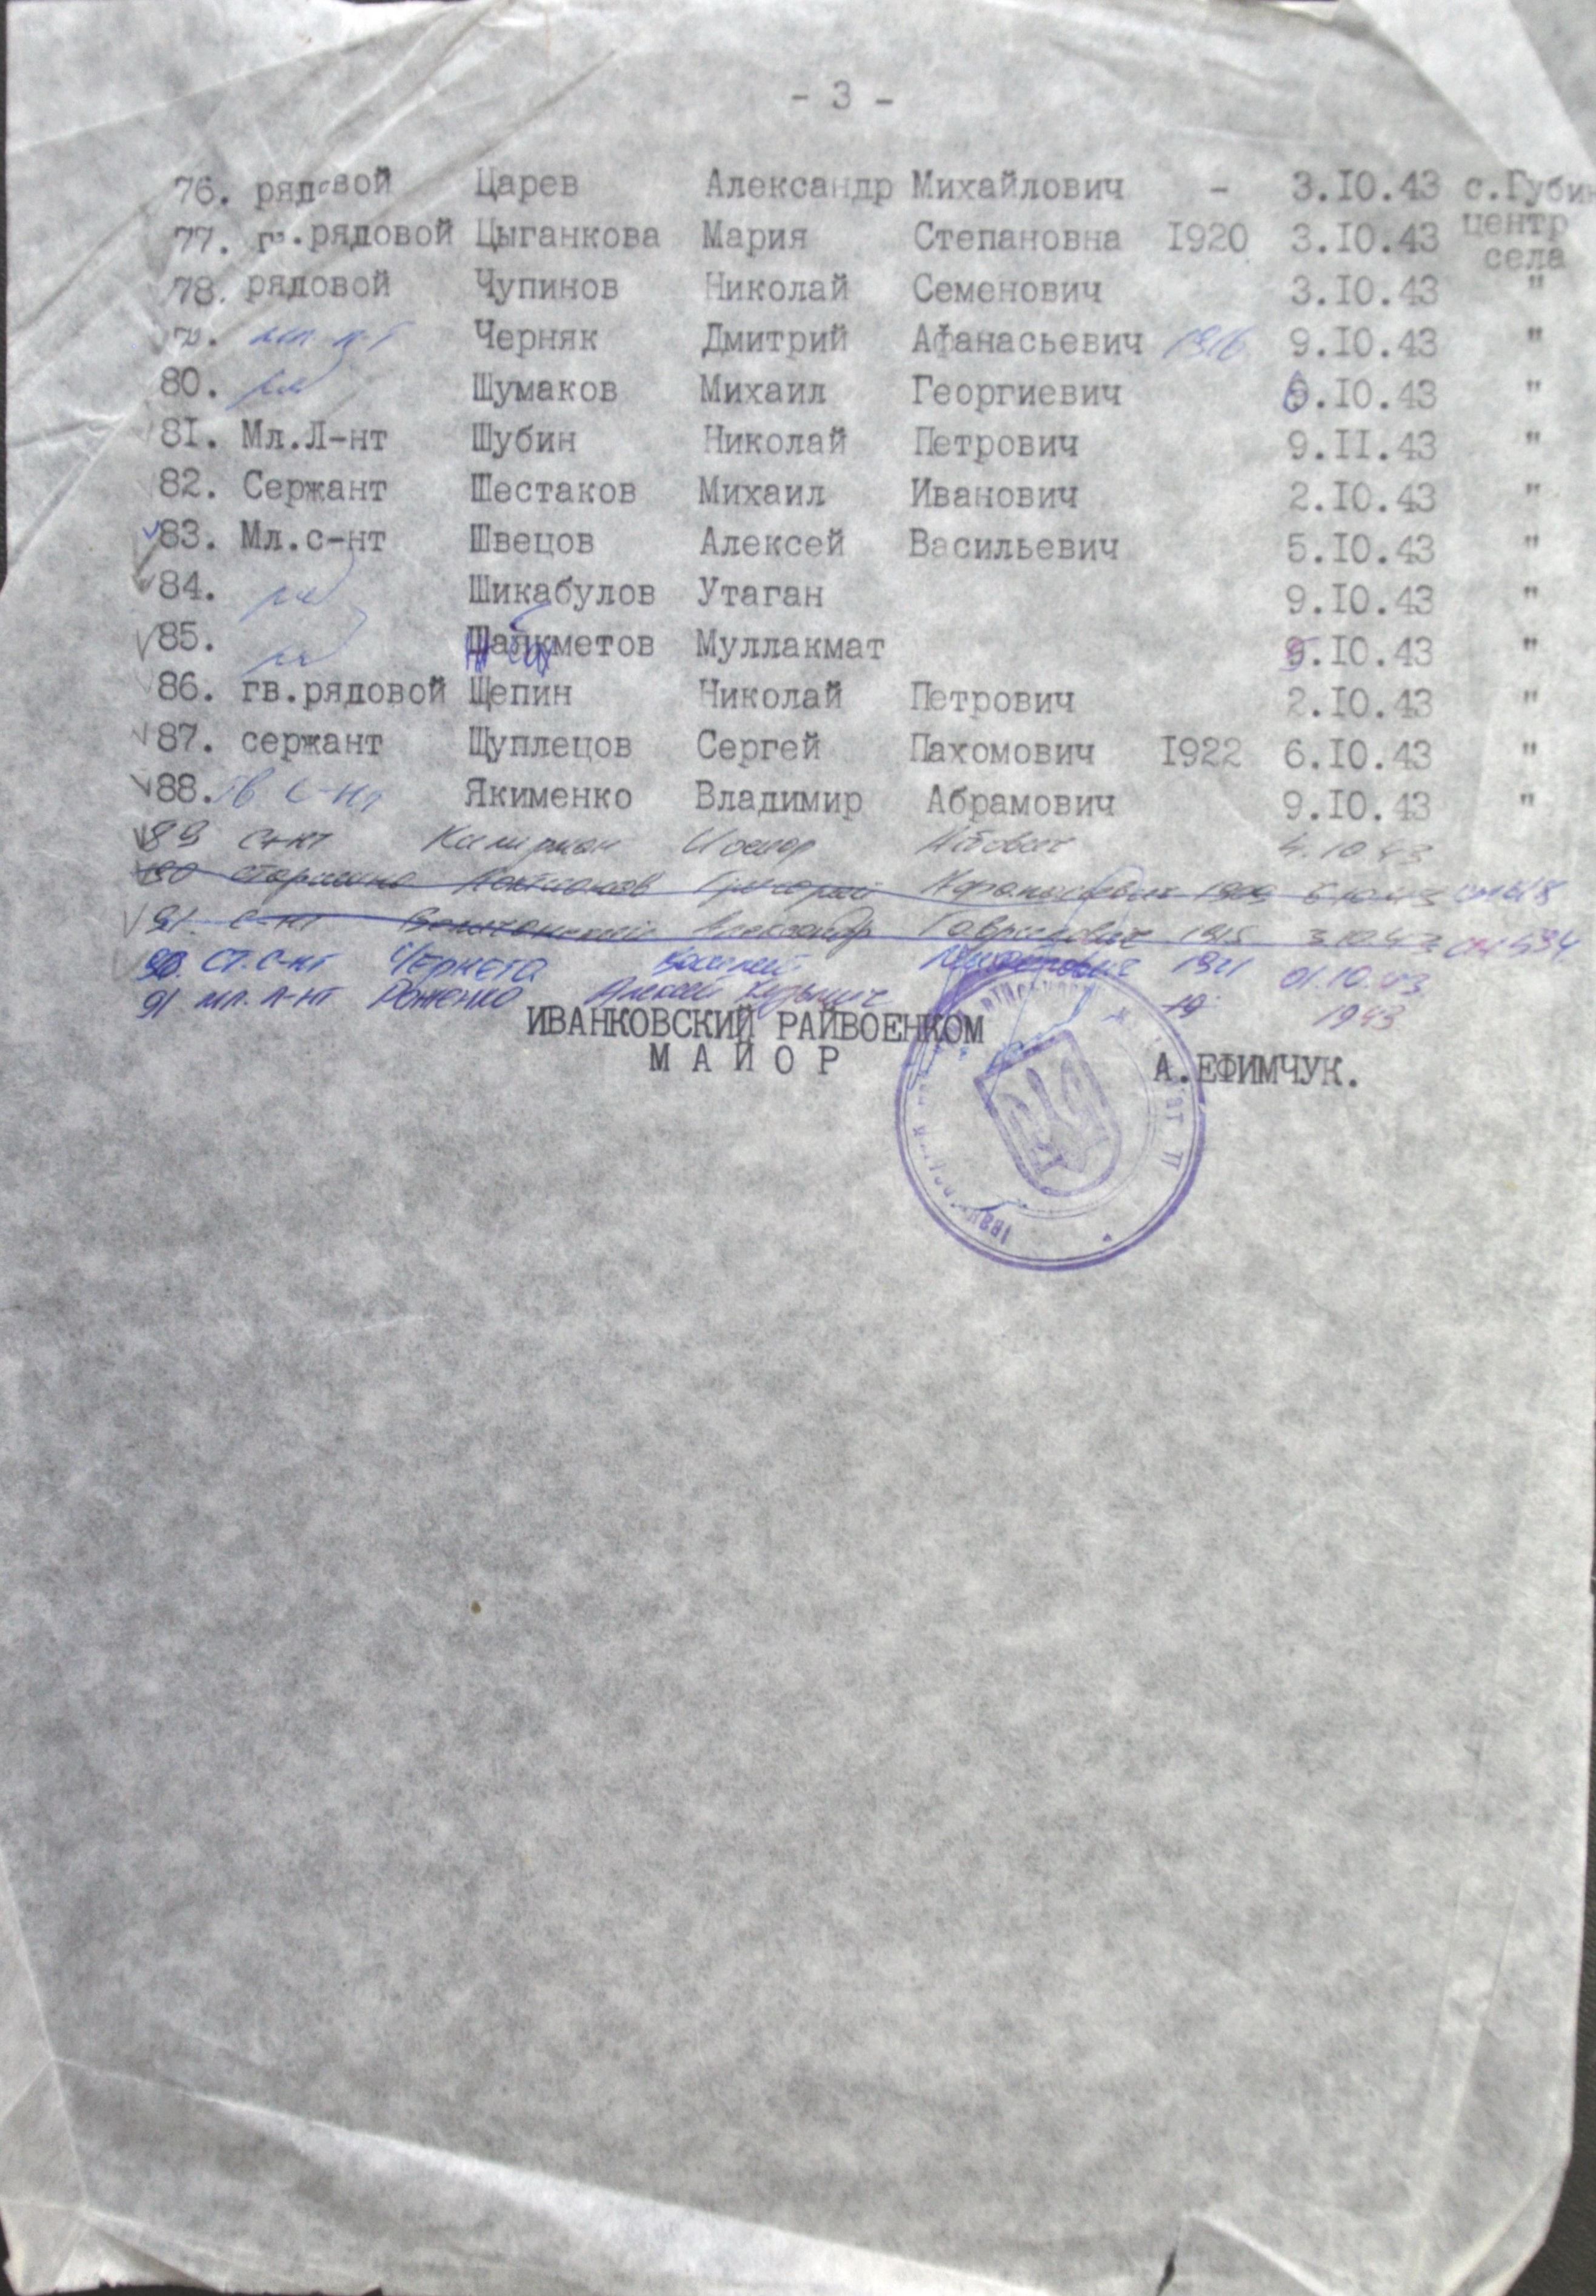 - 3 -
76. рядовой Царев Александр Михайлович - 3.IО.43 с.Губин
77. гв.рядовой Цыганкова Мария Степановна I920 3.IО.43 центр села
78. рядовой Чупинов Николай Семенович 3.IО.43 "
Черняк Дмитрий Афанасьевич 1916 9.IО.43 "
80. Шумаков Михаил Георгиевич .IО.43 "
8I. Мл.Л-нт Шубин Николай Петрович 9.II.43 "
82. Сержант Шестаков Михаил Иванович 2.IО.43 "
83. Мл.с-нт Швецов Алексей Васильевич 5.IО.43 "
84. Шикабулов Утаган 9.IО.43 "
85. Муллакмат .IО.43 "
86. гв.рядовой Щепин Николай Петрович 2.IО.43 "
87. сержант Щуплецов Сергей Пахомович I922 6.IО.43 "
88. Гв С-нт Якименко Владимир Абрамович 9.IО.43 "
89 с-нт 4.10.43
90 старшина Григорий 1909
91. с-нт Александр Гаврилович 1915 3.10.43
90. Ст. С-нт Чернета Василий 1921 01.10.43
91 мл. л-нт Алексей Кузьмич 19 1943
ИВАНКОВСКИЙ РАЙВОЕНКОМ
М А Й О Р А.ЕФИМЧУК.